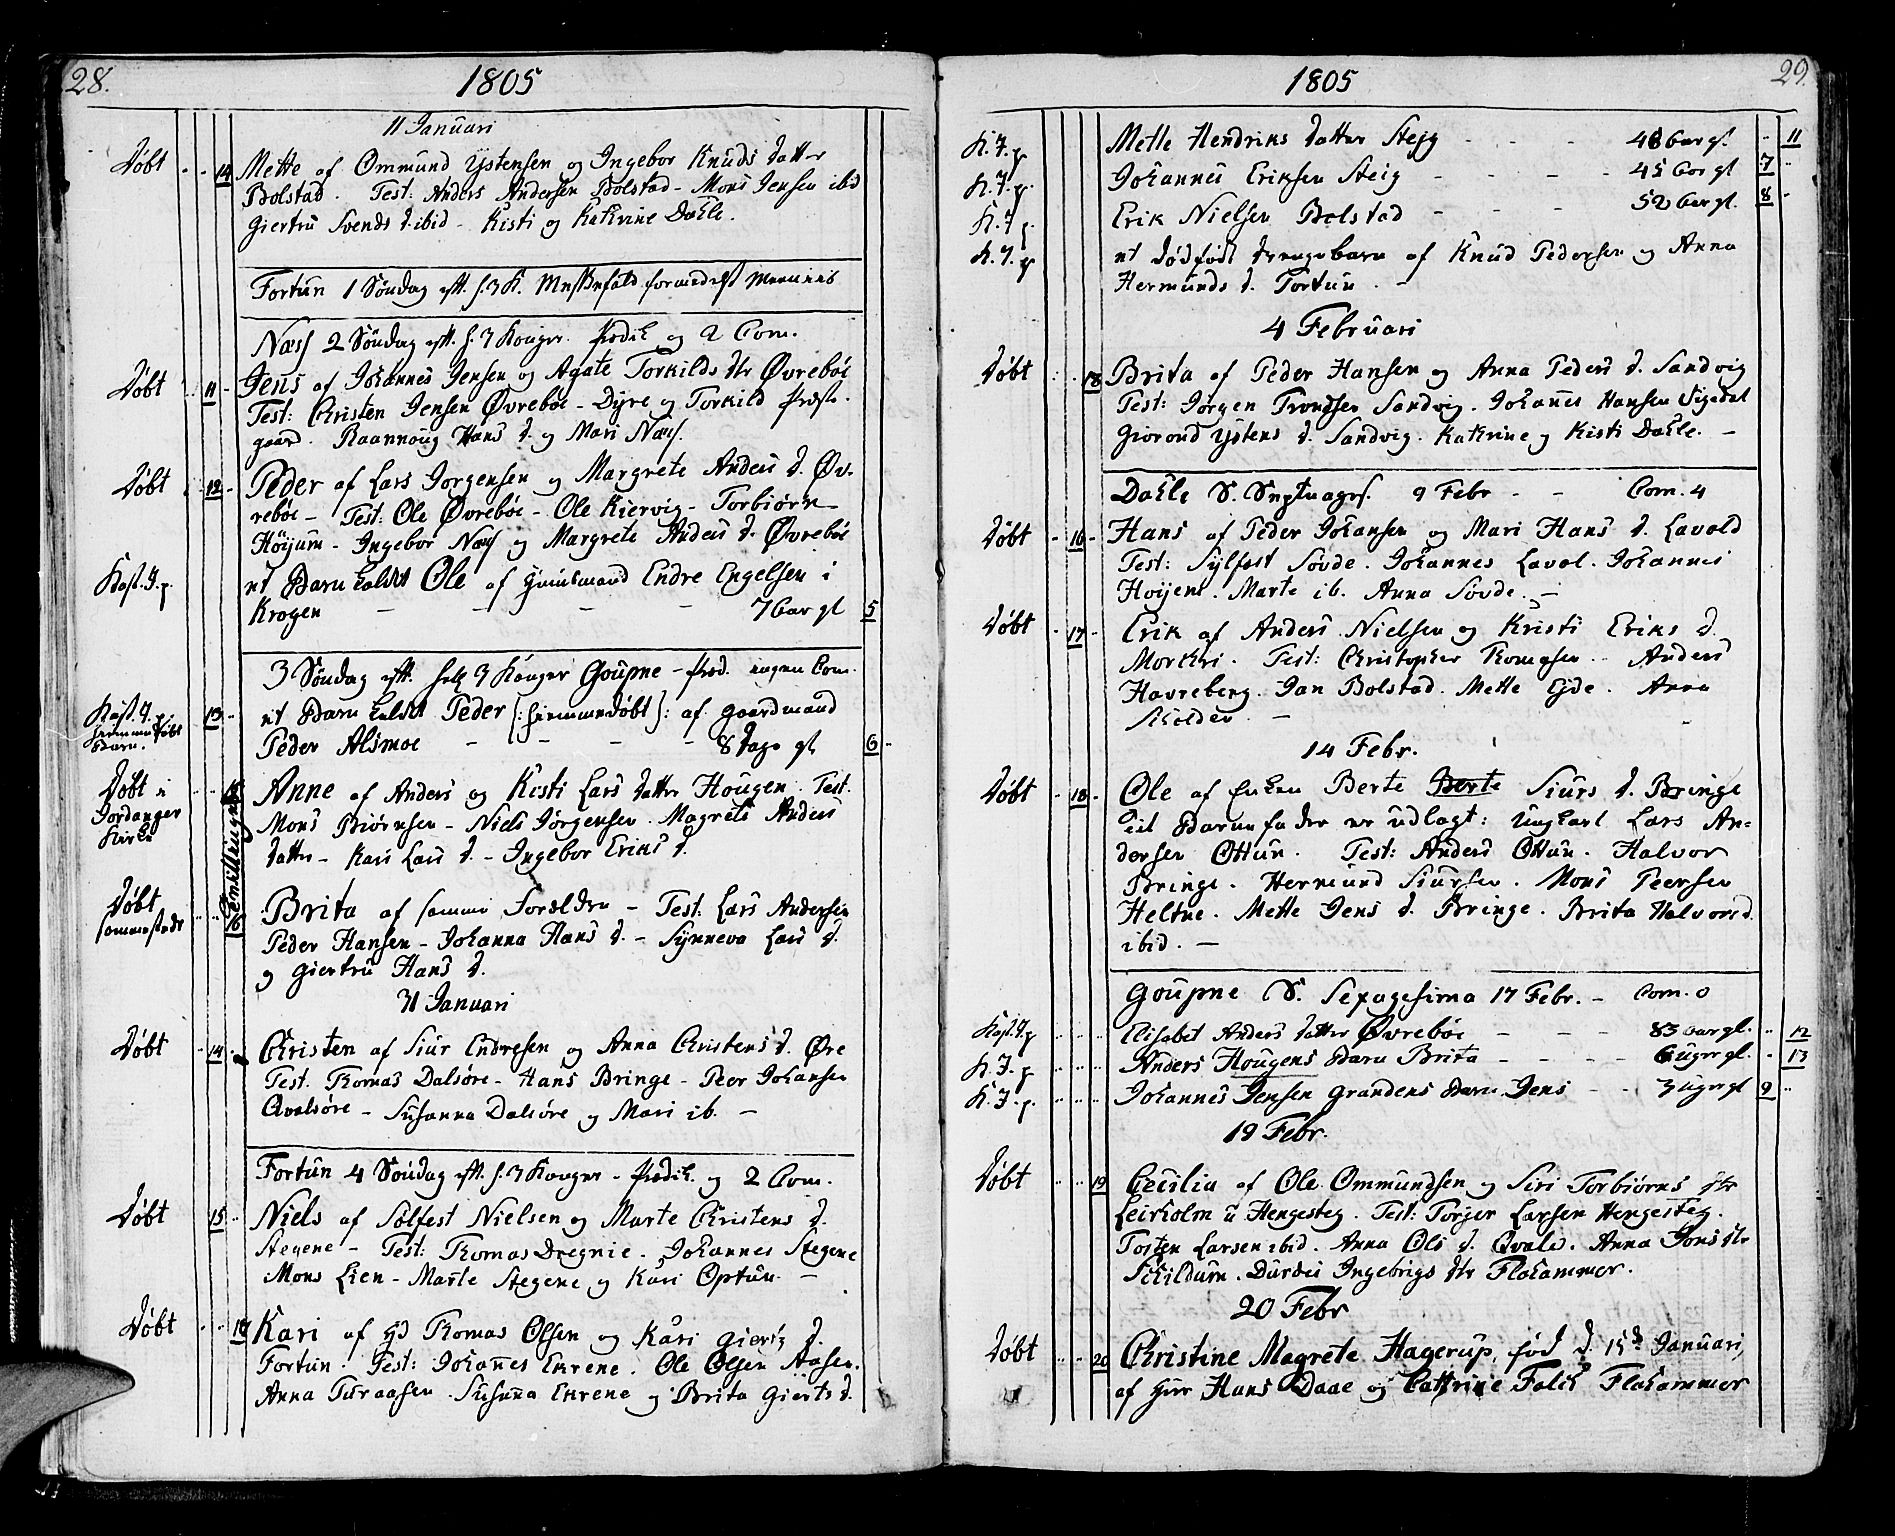 28.
1805
11 Januari
Døbt 14 Mette af Ommund Ystensen og Ingebor Knuds datter
Bolstad. Test: Anders Andersen Bolstad - Mons Jensen ibid
Giertru Svends d. ibid - Kisti og Katrine Dahle.
Fortun 1 Søndag eft. h. 3 K. Messefald formedelst
Næss 2 Søndag eft. h. 3 Konger. Prædik og 2 Com.
Døbt 11 Jens af Johannes Jensen og Agate Torkilds dtr Øvrebøe
Test: Christen Jensen Øvrebøe - Dyre og Torkild Præste-
gaard. Raannoug Hans d. og Mari Næss.
Døbt 12 Peder af Lars Jorgensen og Margrete Anders d. Øv-
rebøe - Test: Ole Øvrebøe - Ole Kiervig - Torbiørn
Høijum - Ingebor Næss og Margrete Anders d. Øvrebøe
Kast. J. p. et Barn kaldet Ole af Huusmand Endre Engelsen i
Krogen - - - - 7 Uar gl 5
3 Søndag eft. hell 3 Konger Goupne - Præd. ingen Com.
Kast. J. p. 13 et Barn kaldet Peder [: hiemmedøbt ]: af Gaardmand
hiemmedøbt
Barn.
Peder Alsmoe - - - - 8 Dage gl 6
Døbt i
Jordanger
Kirke
Tvillinger
Anne af Anders og Kisti Lars datter Hougen. Test.
Mons Biørnsen - Niels Jørgensen. Magrete Anders
datter - Kari Lars d. - Ingebor Eriks d.
Døbt
sammesteds
Brita af samme Forældre - Test: Lars Andersen
Peder Hansen - Johanna Hans d. - Synneva Lars d.
og Giertru Hans d.
31 Januari
Døbt 14 Christen af Siur Endresen og Anna Christens d. Øre
Test. Thomas Dalsøre - Hans Bringe - Peer Johansen
Qvalsøre - Susanna Dalsøre og Mari ib. -
Fortun 4 Søndag eft. h. 3 Konger - Prædik. og 2 Com.
Døbt 15 Niels af Sølfest Nielsen og Marte Christens d.
Stegene - Test: Thomas Dregnie. Johannes Stegene
Mons Lien - Marte Stegene og Kari Optun. -
Døbt Kari af Thomas Olsen og Kari Gierts d.
Fortun. Test: Johannes Ekrene. Ole Olsen Aasen.
Anna Turaasen. Susanna Ekrene og Brita Gierts d.
29.
1805
K. J. p. Mette Hendriks datter Steig - - - 11
K. J. p. Johannes Eriksen Steig - - - 45 Uar gl 7
K. J. p. Erik Nielsen Bolstad - - - 52 Uar gl. 8
K. J. p. et dødfødt drengebarn af Knud Pedersen og Anna
Hermunds d. Fortun. -
4 Februari
Døbt Brita af Peder Hansen og Anna Peders d. Sandvig
Test: Jørgen Trondsen Sandvig. Johannes Hansen Sigedal
Giorond Ystens d. Sandvig. Katrine og Kisti Dahle. -
Dahle S. Septuages. 9 Febr - - Com. 4
Døbt 16 Hans af Peder Johansen og Mari Hans d. Lavold
Test: Sylfest Søvde. Johannes Lavol. Johannes
Hoijem. Marte ib. Anna Søvde. -
Døbt 17 Erik af Anders Nielsen og Kristi Eriks d.
Morkri. Test: Christopher Thomasen. Anders
Havreberg. Jan Bolstad. Mette Ejde. Anna
Skolden -
14 Febr.
Døbt 18 Ole af Enken Berte Berte Siurs d. Bringe
til Barnefader er udlagt: Ungkarl Lars An-
dersen Ottun. Test: Anders Ottun. Halvor
Bringe. Hermund Siursen. Mons Peersen
Heltne. Mette Jens d. Bringe. Brita Halvors d.
ibid. -
Goupne S. Sexagesima 17 Febr. - Com. 0
Kast. J. p Elisabet Anders datter Øvrebøe - - - 83 Uar gl. 12
K. J. p Anders Hougens Barn Brita - - - - 6 Uger gl. 13
K. J. p. Johannes Jensen Grandens Barn Jens - - 3 Uger gl 9
19 Febr.
Døbt 19 Cecilia af Ole Ommundsen og Siri Torbiørns dtr
Leirholm u Hengesteg. Test: Torger Larsen Hengesteg.
Tosten Larsen ibid. Anna Ols d. Qvale. Anna Jons dtr
Skildum. Durdei Ingebrigs dtr Flohammer.
20 Febr
Døbt 20 Christine Magrete Hagerup, fød d. 15d Januari,
af Herr Hans Daae og Cathrine Falck Flahammer